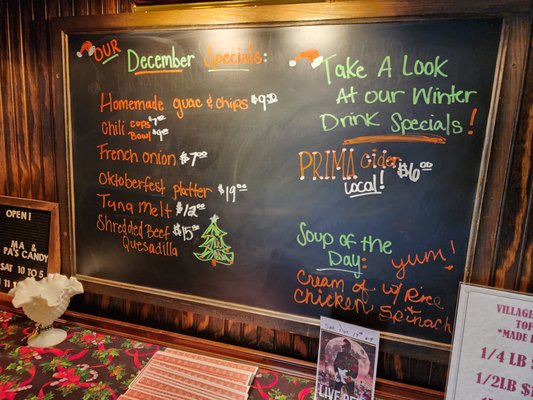 OUR December Specials:
Homemade guac & chips $9.50
Chili cups $7.00
Bowl $9.00
French onion $7.00
Oktoberfest platter $19.00
Tuna Melt $12.00
Shredded Beef $15.00
Quesadilla
Take A Look
At our Winter
Drink Specials!
PRIMA Cider $6.00
Local!
Soup of the
Day: yum!
Cream of w/ Rice
chicken & Spinach
OPEN
MA &
PA'S CANDY
SAT 10
VILLAGE
*MADE
1/4 LB
1/2LB
LIVE